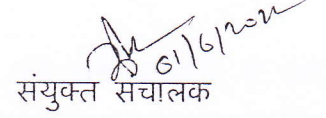 01/6/2022
संयुक्त संचालक